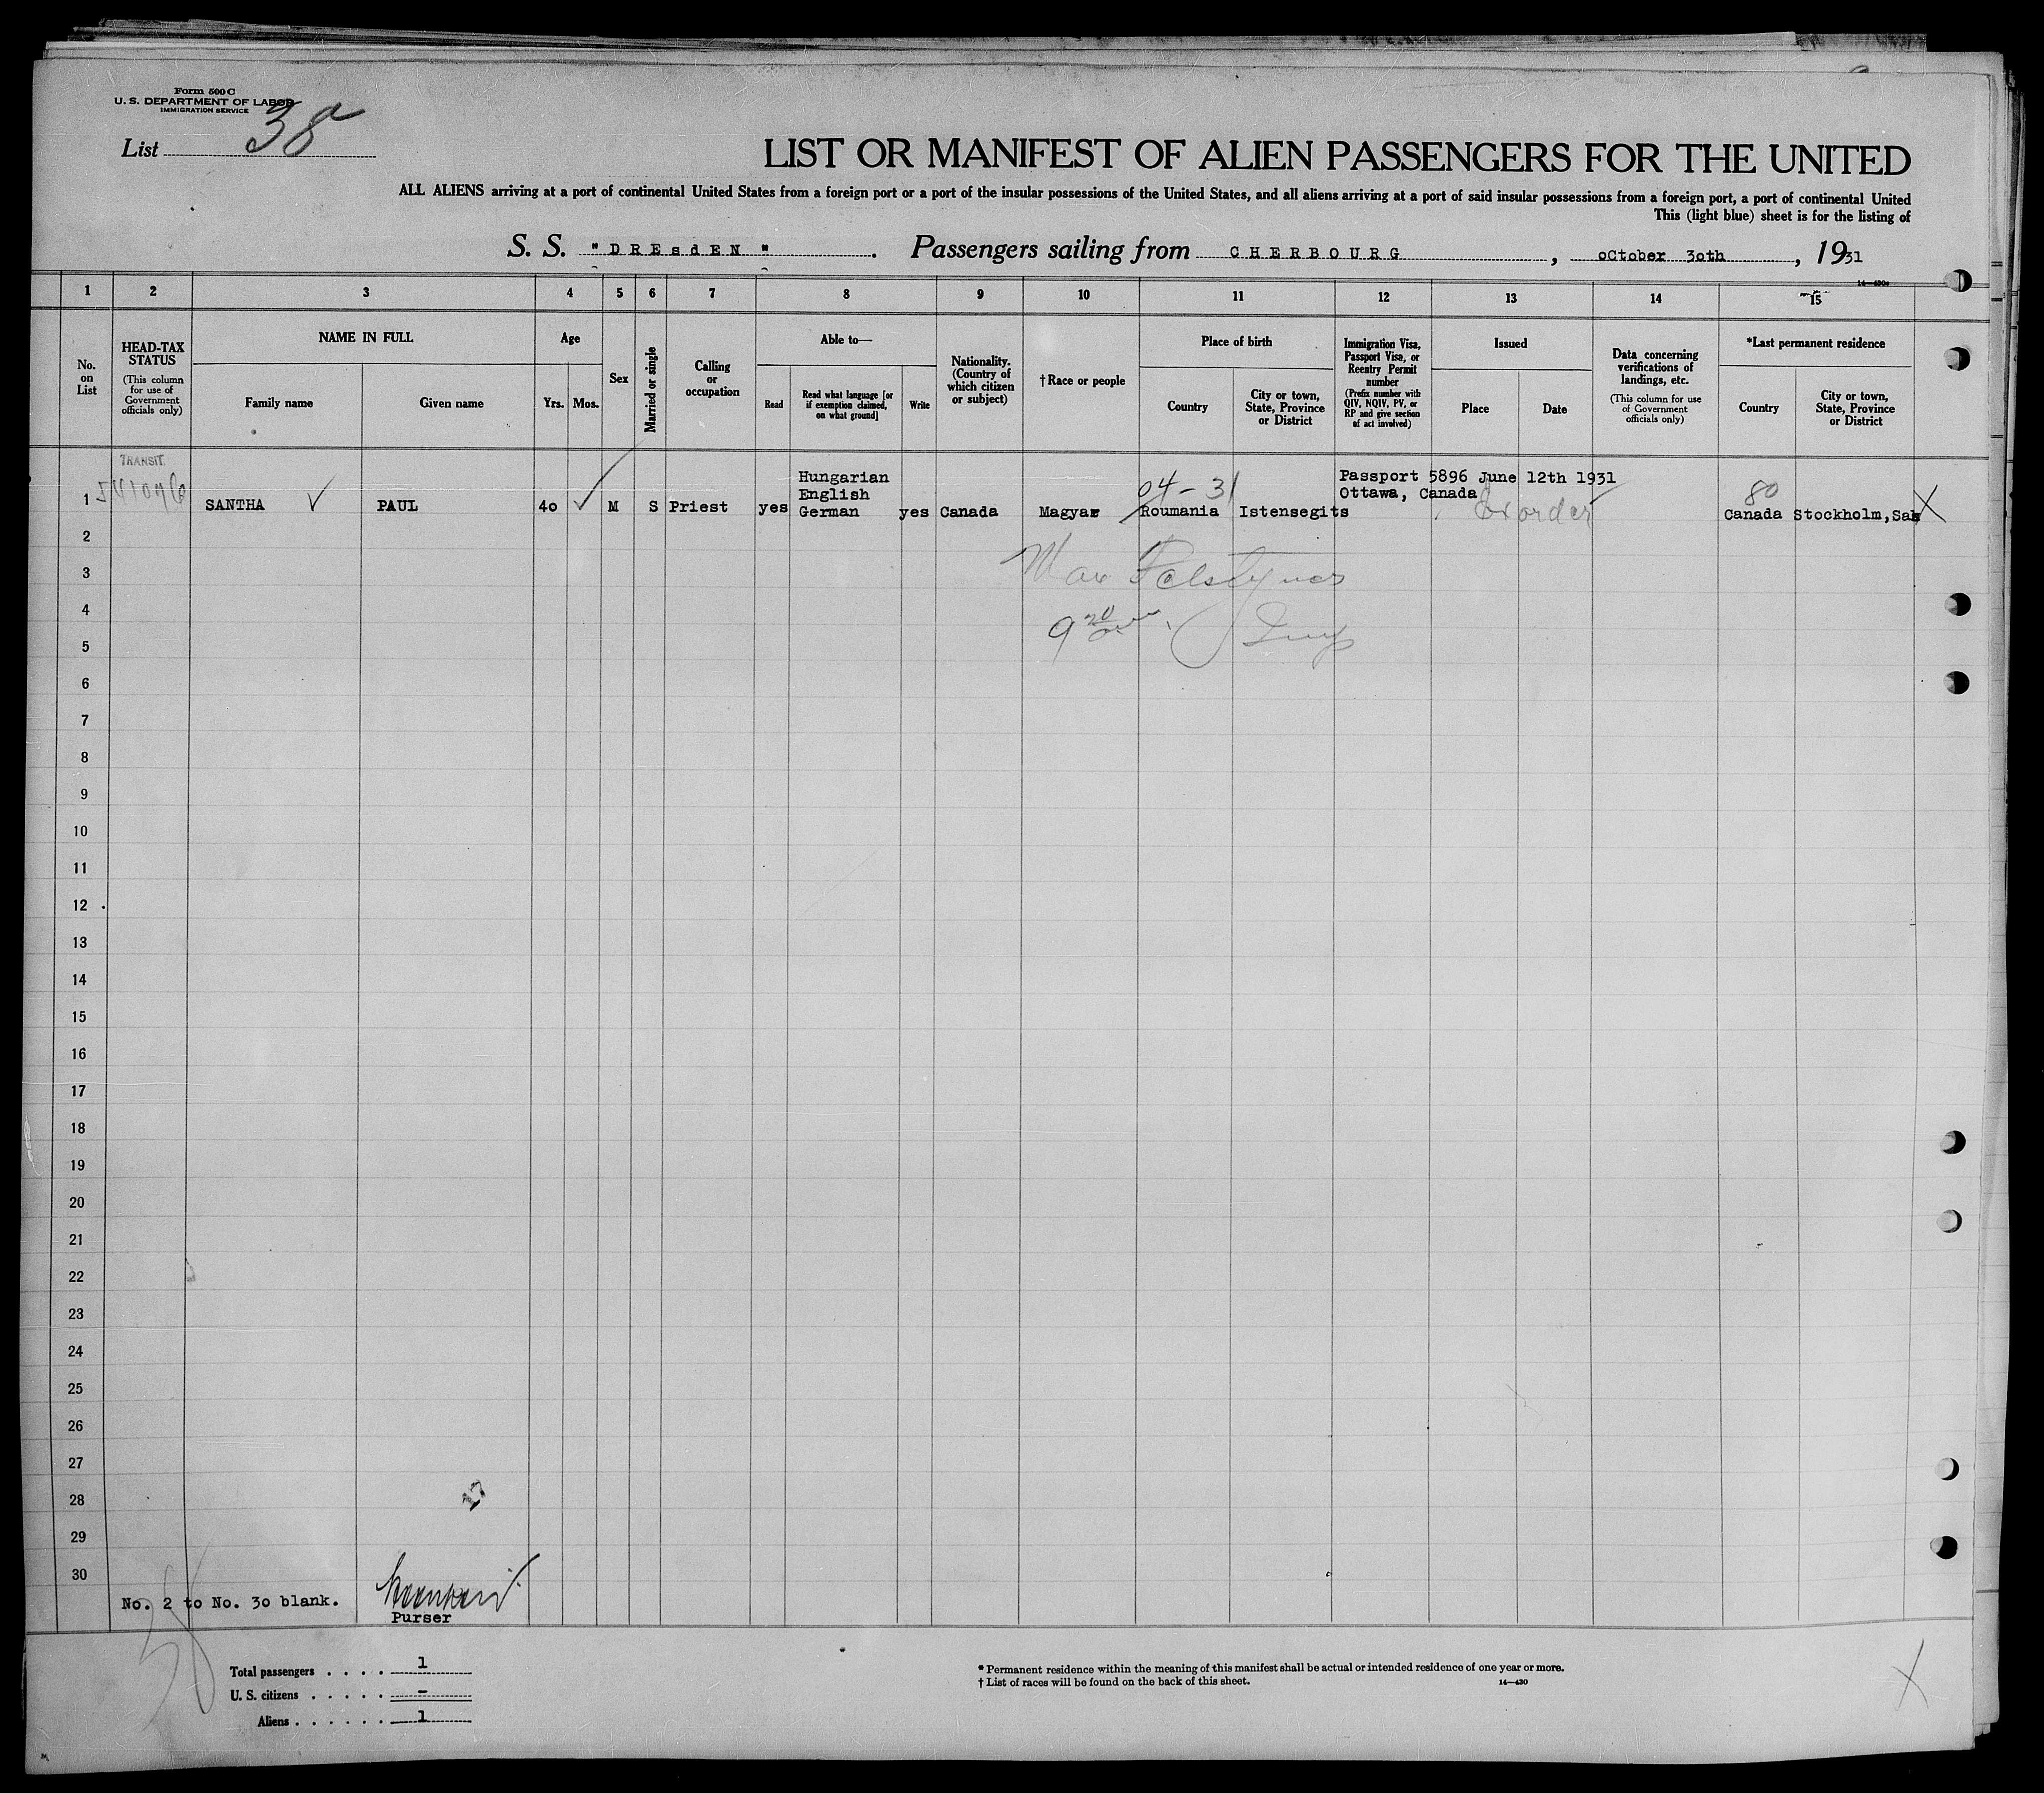 Form 500 C
U. S. DEPARTMENT OF LABOR
IMMIGRATION SERVICE
List 38
LIST OR MANIFEST OF ALIEN PASSENGERS FOR THE UNITED
ALL ALIENS arriving at a port of continental United States from a foreign port or a port of the insular possessions of the United States, and all aliens arriving at a port of said insular possessions from a foreign port, a port of continental United
This (light blue) sheet is for the listing of
S. S. "DREsdEN". Passengers sailing from CHERBOURG, OCtober 30th, 1931
14—430a
1 2 3 4 5 6 7 8 9 10 11 12 13 14 15
No. on List
HEAD-TAX STATUS
(This column for use of Government officials only)
NAME IN FULL
Family name
Given name
Age
Yrs. Mos.
Sex
Married or single
Calling or occupation
Able to—
Read
Read what language [or if exemption claimed, on what ground]
Write
Nationality. (Country of which citizen or subject)
†Race or people
Place of birth
Country
City or town, State, Province or District
Immigration Visa, Passport Visa, or Reentry Permit number
(Prefix number with QIV, NQIV, PV, or RP and give section of act involved)
Issued
Place
Date
Data concerning verifications of landings, etc.
(This column for use of Government officials only)
*Last permanent residence
Country
City or town, State, Province or District
TRANSIT
Hungarian
English
04-31
Passport 5896 June 12th 1931
Ottawa, Canada
80
1 SANTHA PAUL 40 M S Priest yes German yes Canada Magyar Roumania Istensegits Canada Stockholm, Sak X
2
3
4
5
6
7
8
9
10
11
12
13
14
15
16
17
18
19
20
21
22
23
24
25
26
27
28
29
30
No. 2 to No. 30 blank.
Purser
38
Total passengers . . . . 1
U. S. citizens . . . . . -
Aliens . . . . . . 1
* Permanent residence within the meaning of this manifest shall be actual or intended residence of one year or more.
† List of races will be found on the back of this sheet.
14—430
X